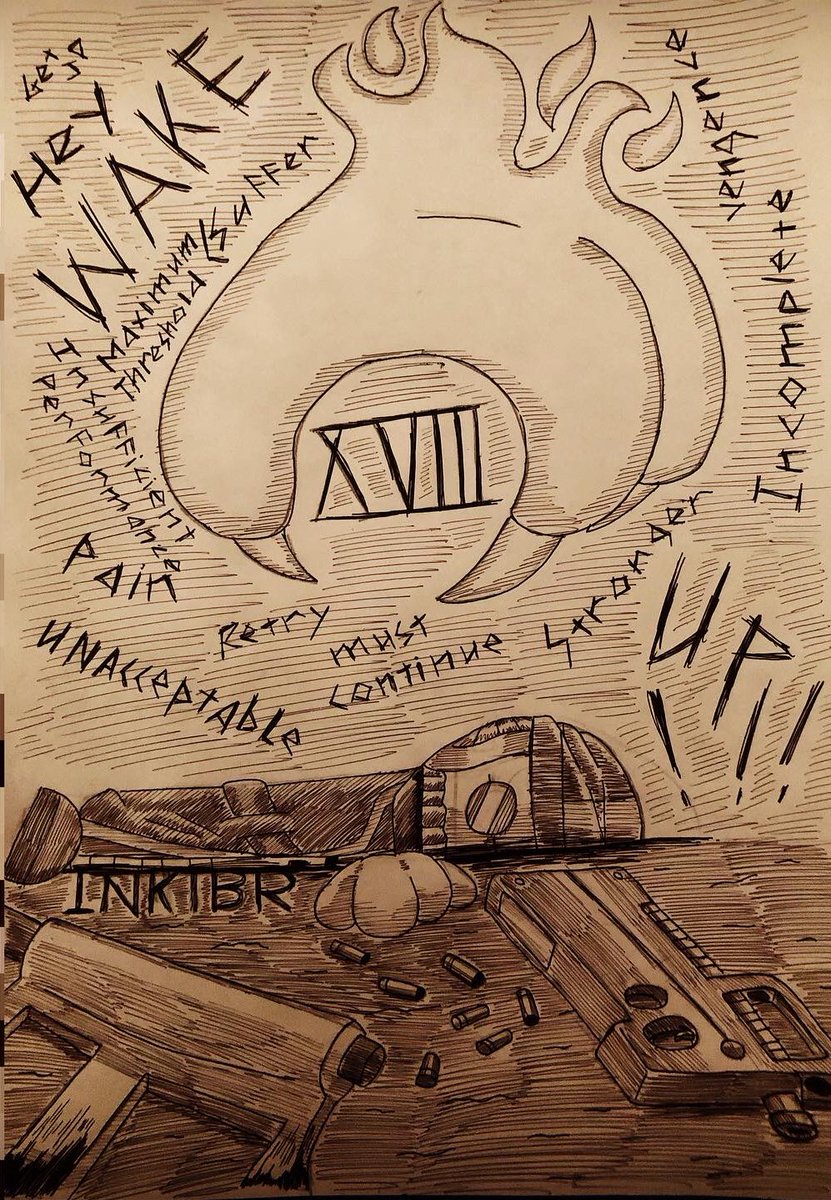 Get up
Hey
WAKE
Suffer
Maximum
Threshold
Insufficient
performance
Pain
UNAcceptABLe
Retry
must
continue
Stronger
vengence
Incomplete
UP!!!
XVIII
INKTBR